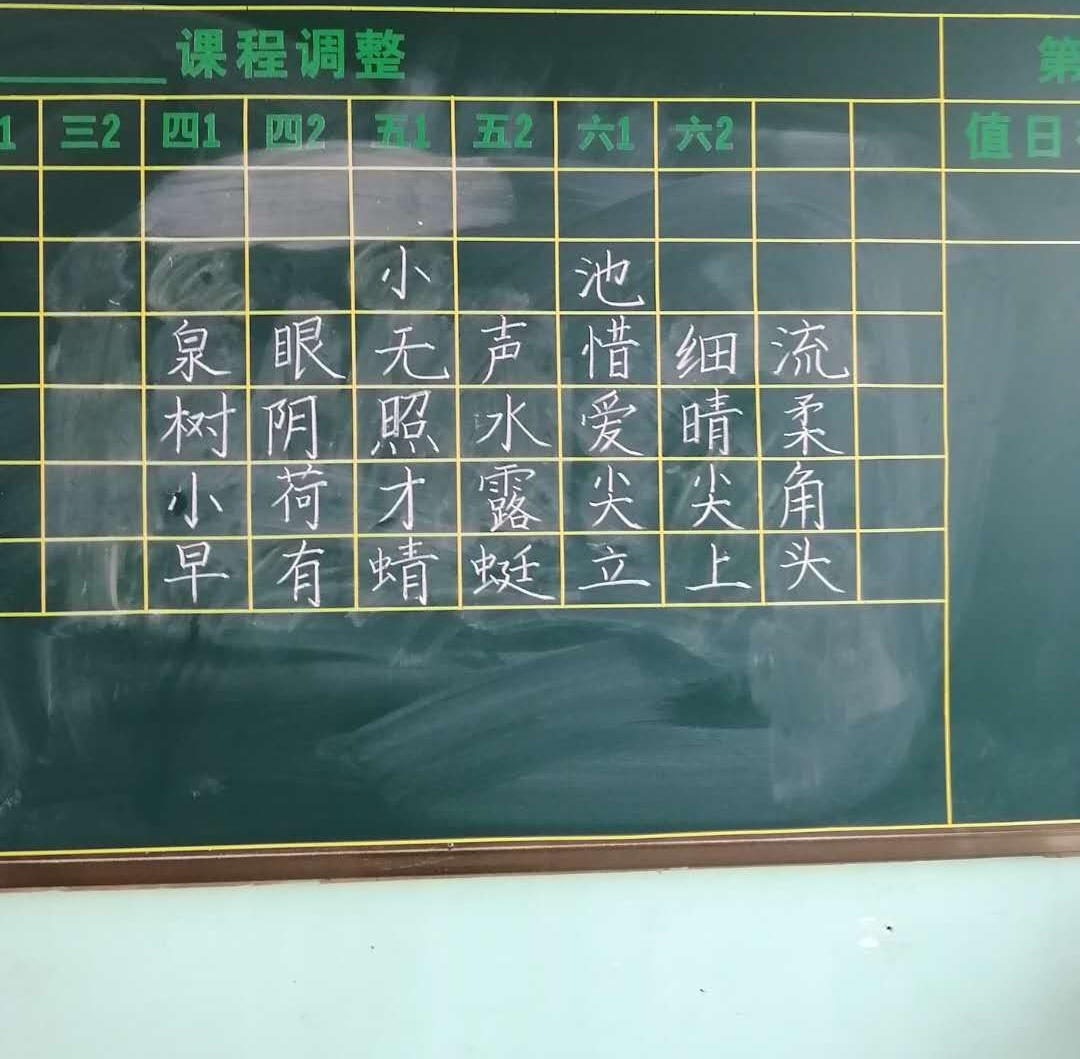 课程调整 第
1 三2 四1 四2 五1 五2 六1 六2 值日
小池
泉眼无声惜细流
树阴照水爱晴柔
小荷才露尖尖角
早有蜻蜓立上头